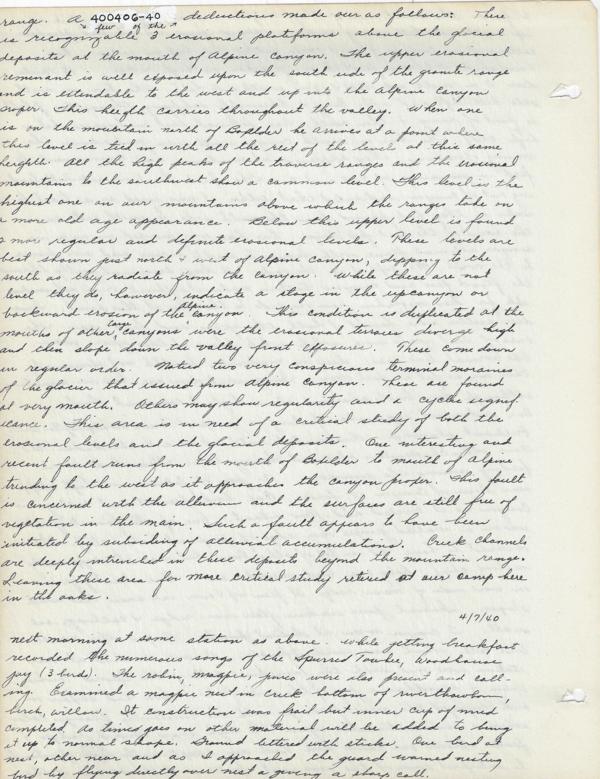 400406-40
range. A few of the deductions made over as follows: There
is recognizable 3 erosional platforms above the glacial
deposits at the mouth of Alpine Canyon. The upper erosional
remenant is well exposed upon the south side of the granite range
and is extendable to the west and up into the Alpine Canyon
proper. This heigth carries throughout the valley. When one
is on the mountain north of Boulder he arrives at a point where
this level is tied in with all the rest of the levels at this same
heighth. All the high peaks of the traverse ranges and the erosional
mountains to the southwest show a common level. This level is the
highest one on our mountains above which the ranges take on
a more old age appearance. Below this upper level is found
2 more regular and definite erosional levels. These levels are
best shown just north & west of Alpine Canyon, dipping to the
south as they radiate from the canyon. While these are not
level they do, however, indicate a stage in the upcanyon or
backward erosion of the Alpine canyon. This condition is duplicated at the
mouths of other large canyons were the erosional terraces diverge high
and then slope down the valley front exposures. These come down
in regular order. Noticed two very conspicious terminal moraines
of the glacier that issued from Alpine Canyon. These are found
at very mouth. Others may show regularity and a cyclic signif
icance. This area is in need of a critical study of both the
erosional levels and the glacial deposits. One interesting and
recent fault runs from the mouth of Boulder to mouth of Alpine
trending to the west as it approaches the canyon proper. This fault
is concerned with the alluvium and the surfaces are still free of
vegetation in the main. Such a fault appears to have been
initiated by subsiding of alluvial accumulations. Creek Channels
are deeply intrenched in these deposits beyond the mountain range.
Leaving these area for more critical study retired at our camp here
in the oaks.
4/7/40
next morning at same station as above. While getting breakfast
recorded the numerous songs of the Spurred Towhee, Woodhouse
jay (3 birds). The robin, magpie, juncos were also present and call-
ing. Examined a magpie nest in creek bottom of river hawthorn,
birch, willow. It construction was frail but inner cup of mud
completed. As times goes on other material will be added to bring
it up to normal shape. Ground littered with sticks. One bird at
nest, other near and as I approached the guard warned nesting
bird by flying directly over nest & giving a sharp call.